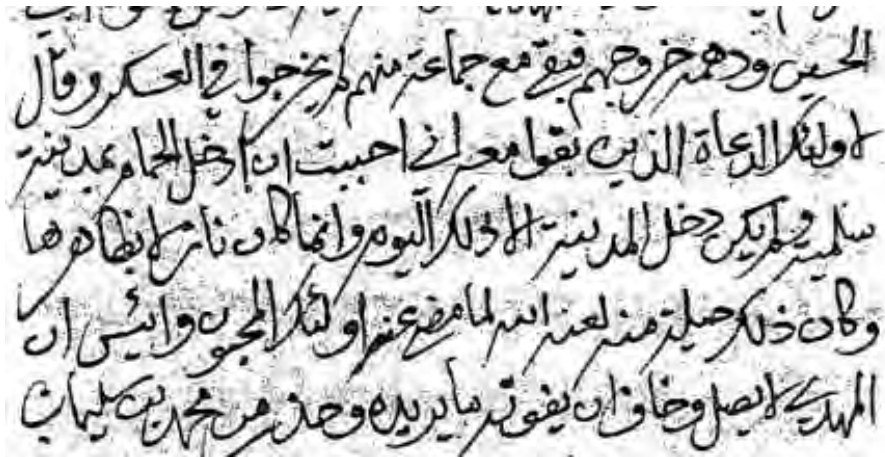 الحسين ودهمه خروجهم فبقي مع جماعة منهم لم يخرجوا في العسكر وقال
لاولئك الدعاة الذين بقوا معه اني احببت ان ادخل الحمام بمدينة
سلمية ولم يكن دخل المدينة الا ذلك اليوم وانما كان نازلا بظاهرها
وكان ذلك حيلة منه لعنه الله لما مضى عنه اولئك المحبون وائيس ان
المهدي لا يصل وخاف ان يفوته ما يريده وحذر من محمد بن سليمان